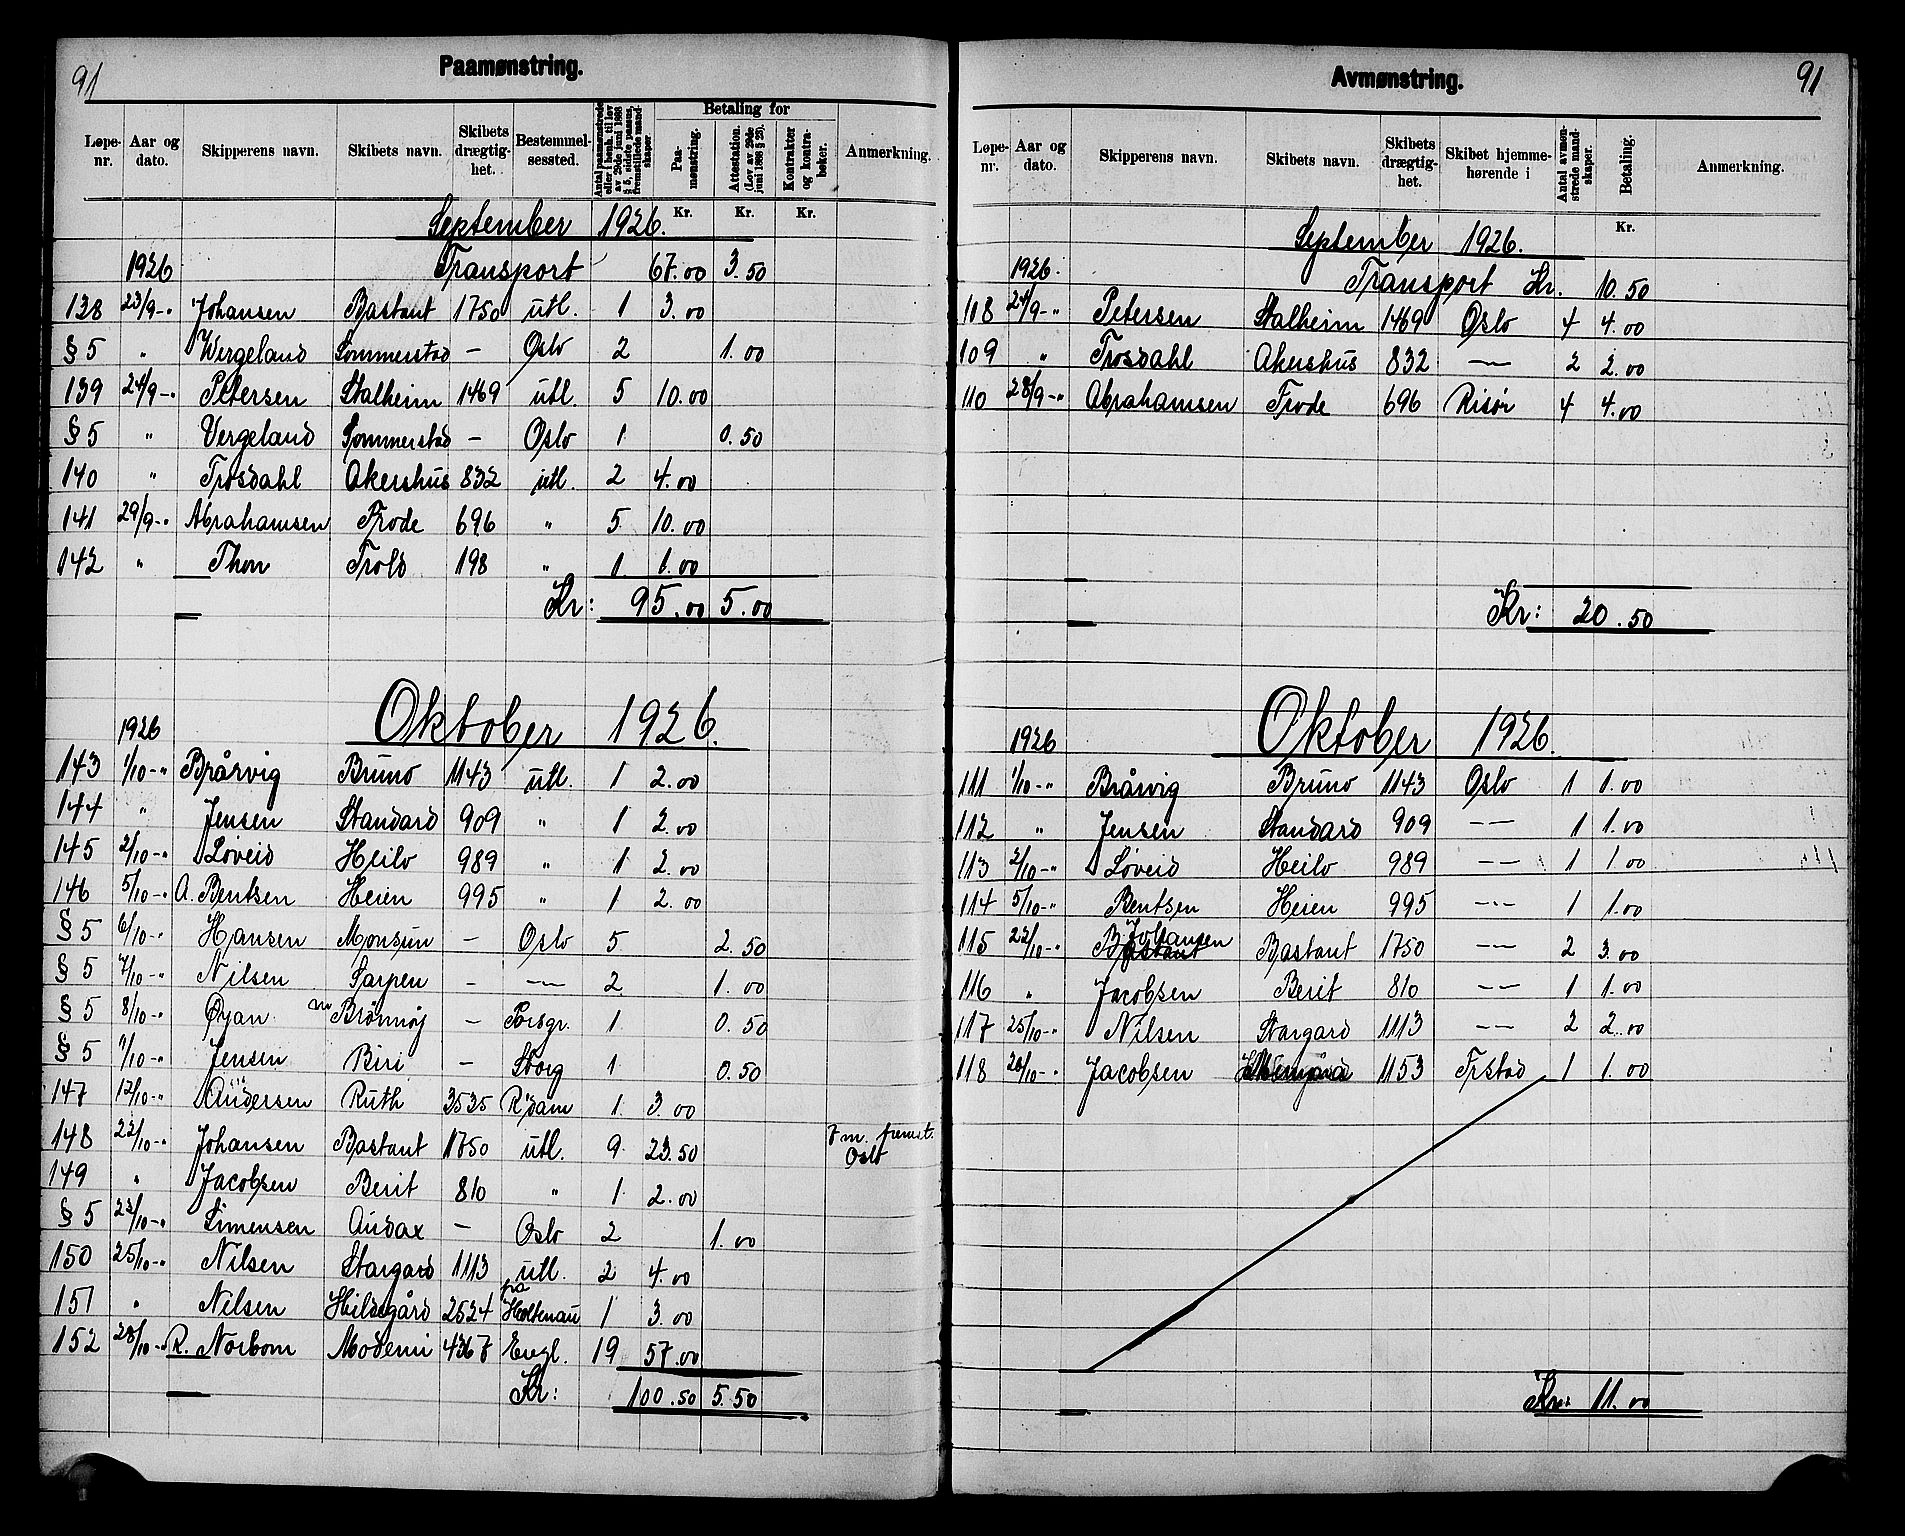 91
Paamønstring.
Løpe-nr. Aar og dato. Skipperens navn. Skibets navn. Skibets drægtig-het. Bestemmel-sessted. Antal paamønstrede eller i henh. til lov av 29de juni 1888 § 5, sidste passus, fremstillede mand-skaper Betaling for Paa-mønstring. Attestation. (Lov av 29de juni 1888 § 25). Kontrakter og kontra-bøker. Anmerkning.
Kr. Kr. Kr.
September 1926.
1926 Transport 67.00 3.50
138 23/9-" Johansen Bastant 1750 utl. 1 3.00
§ 5 " Wergeland Sommerstad – Oslo 2 1.00
139 24/9-" Petersen Stalheim 1469 utl. 5 10.00
§ 5 " Vergeland Sommerstad – Oslo 1 0.50
140 " Trosdahl Akershus 832 utl. 2 4.00
141 29/9-" Abrahamsen Frode 696 " 5 10.00
142 " Thon Trold 198 " 1 1.00
Kr: 95.00 5.00
Oktober 1926.
1926
143 1/10-" Brårvig Bruno 1143 utl. 1 2.00
144 " Jensen Standard 909 " 1 2.00
145 2/10-" Løveid Heilo 989 " 1 2.00
146 5/10-" A. Bentsen Heien 995 " 1 2.00
§ 5 6/10-" Hansen Monsun – Oslo 5 2.50
§ 5 7/10-" Nilsen Sarpen – –"– 2 1.00
§ 5 8/10-" Øyan Brönnöj – Porsgr. 1 0.50
§ 5 Jensen Biri – 1 0.50
147 12/10-" Andersen Ruth 3535 R'dam 1 3.00
148 22/10-" Johansen Bastant 1750 utl. 9 23.50 7 m. fremst. Oslo
149 " Jacobsen Berit 810 " 1 2.00
§ 5 23/10-" Simensen Audax – Oslo 2 1.00
150 25/10-" Nilsen Stargard 1113 utl. 2 4.00
151 " Nilsen Hildegård 2524 på Holtenau 1 3.00
152 28/10-" R. Norbom Modemi 4367 Engl. 19 57.00
Kr: 100.50 5.50
91
Avmønstring.
Løpe-nr. Aar og dato. Skipperens navn. Skibets navn. Skibets drægtig-het. Skibet hjemme-hørende i Antal avmøn-strede mand-skaper. Betaling. Anmerkning.
Kr.
September 1926.
1926. Transport Kr. 10.50
108 24/9-" Petersen Stalheim 1469 Oslo 4 4.00
109 " Trosdahl Akershus 832 –"– 2 2.00
110 28/9-" Abrahamsen Frode 696 Risør 4 4.00
Kr: 20.50
Oktober 1926.
1926
111 1/10-" Brårvig Bruno 1143 Oslo 1 1.00
112 " Jensen Standard 909 –"– 1 1.00
113 2/10-" Løveid Heilo 989 –"– 1 1.00
114 5/10-" Bentsen Heien 995 –"– 1 1.00
115 22/10-" B. Johansen Bastant 1750 –"– 2 3.00
116 " Jacobsen Berit 810 1 1.00
117 25/10-" Nilsen Stargard 1113 –"– 2 2.00
118 28/10-" Jacobsen 1153 Frstad 1 1.00
Kr: 11.00